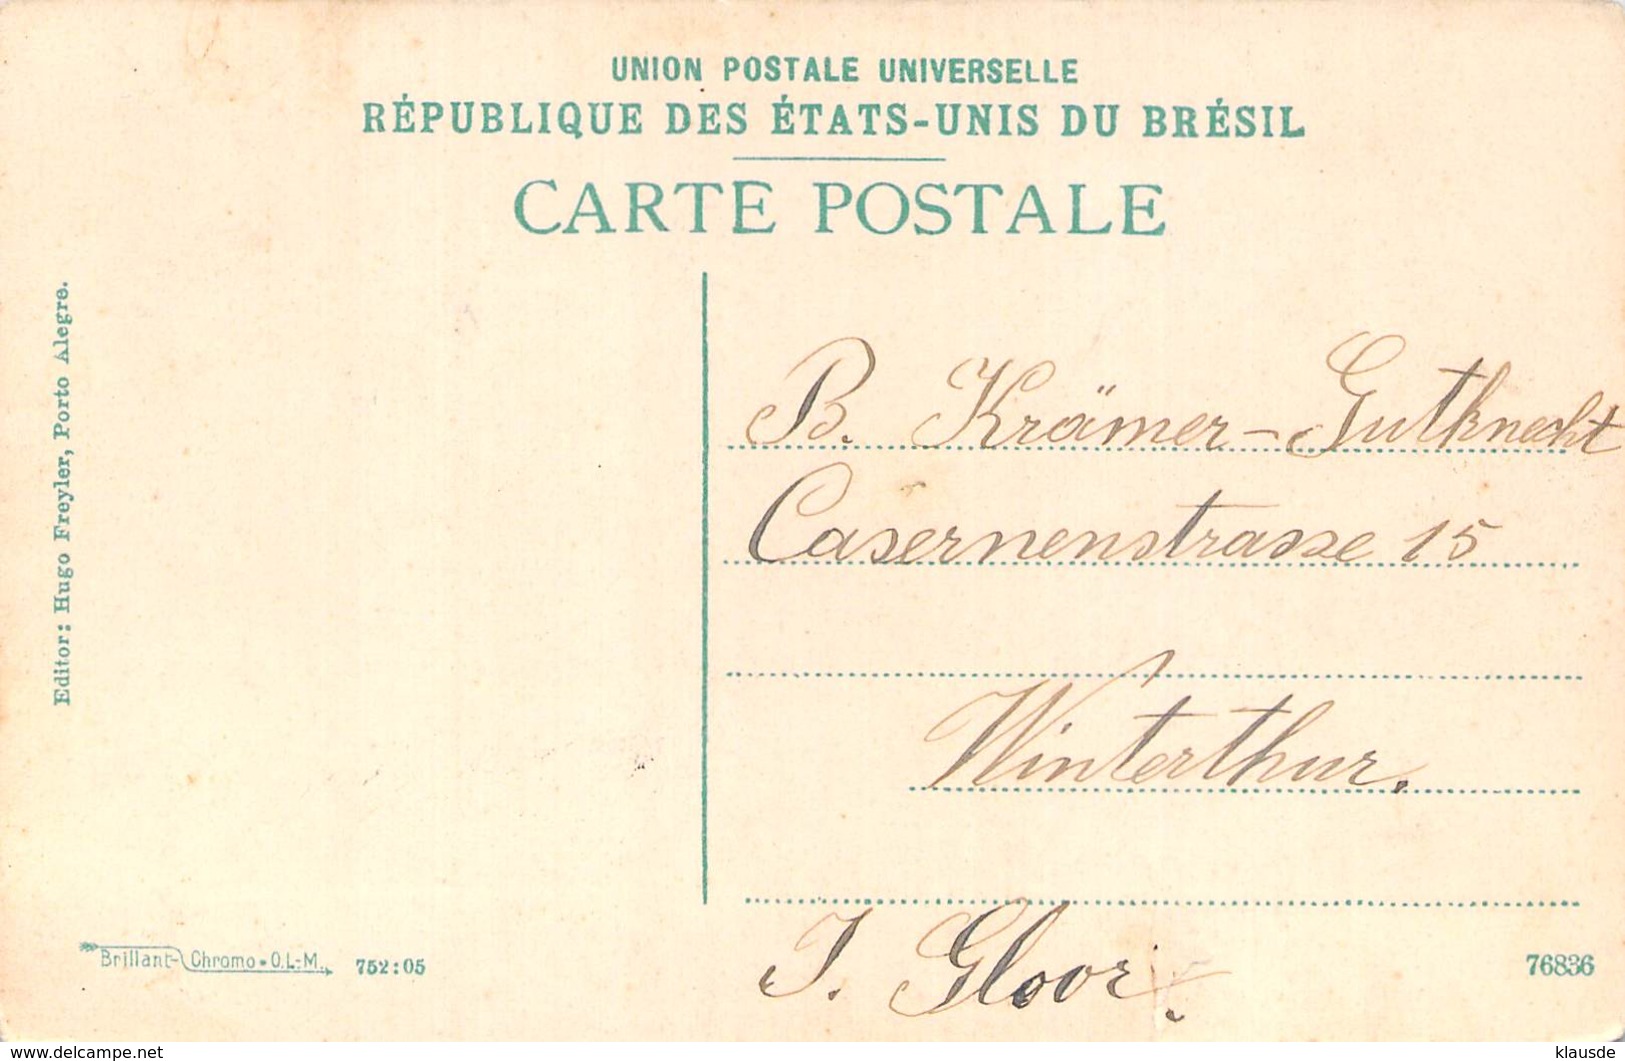 UNION POSTALE UNIVERSELLE
RÉPUBLIQUE DES ÉTATS-UNIS DU BRÉSIL
CARTE POSTALE
Editor: Hugo Freyler, Porto Alegre.
B. Krämer-Gutknecht
Casernenstrasse 15
Winterthur.
J. Gloor
Brillant-Chromo • O.L-M.
752:05
76836
www.delcampe.net
klausde